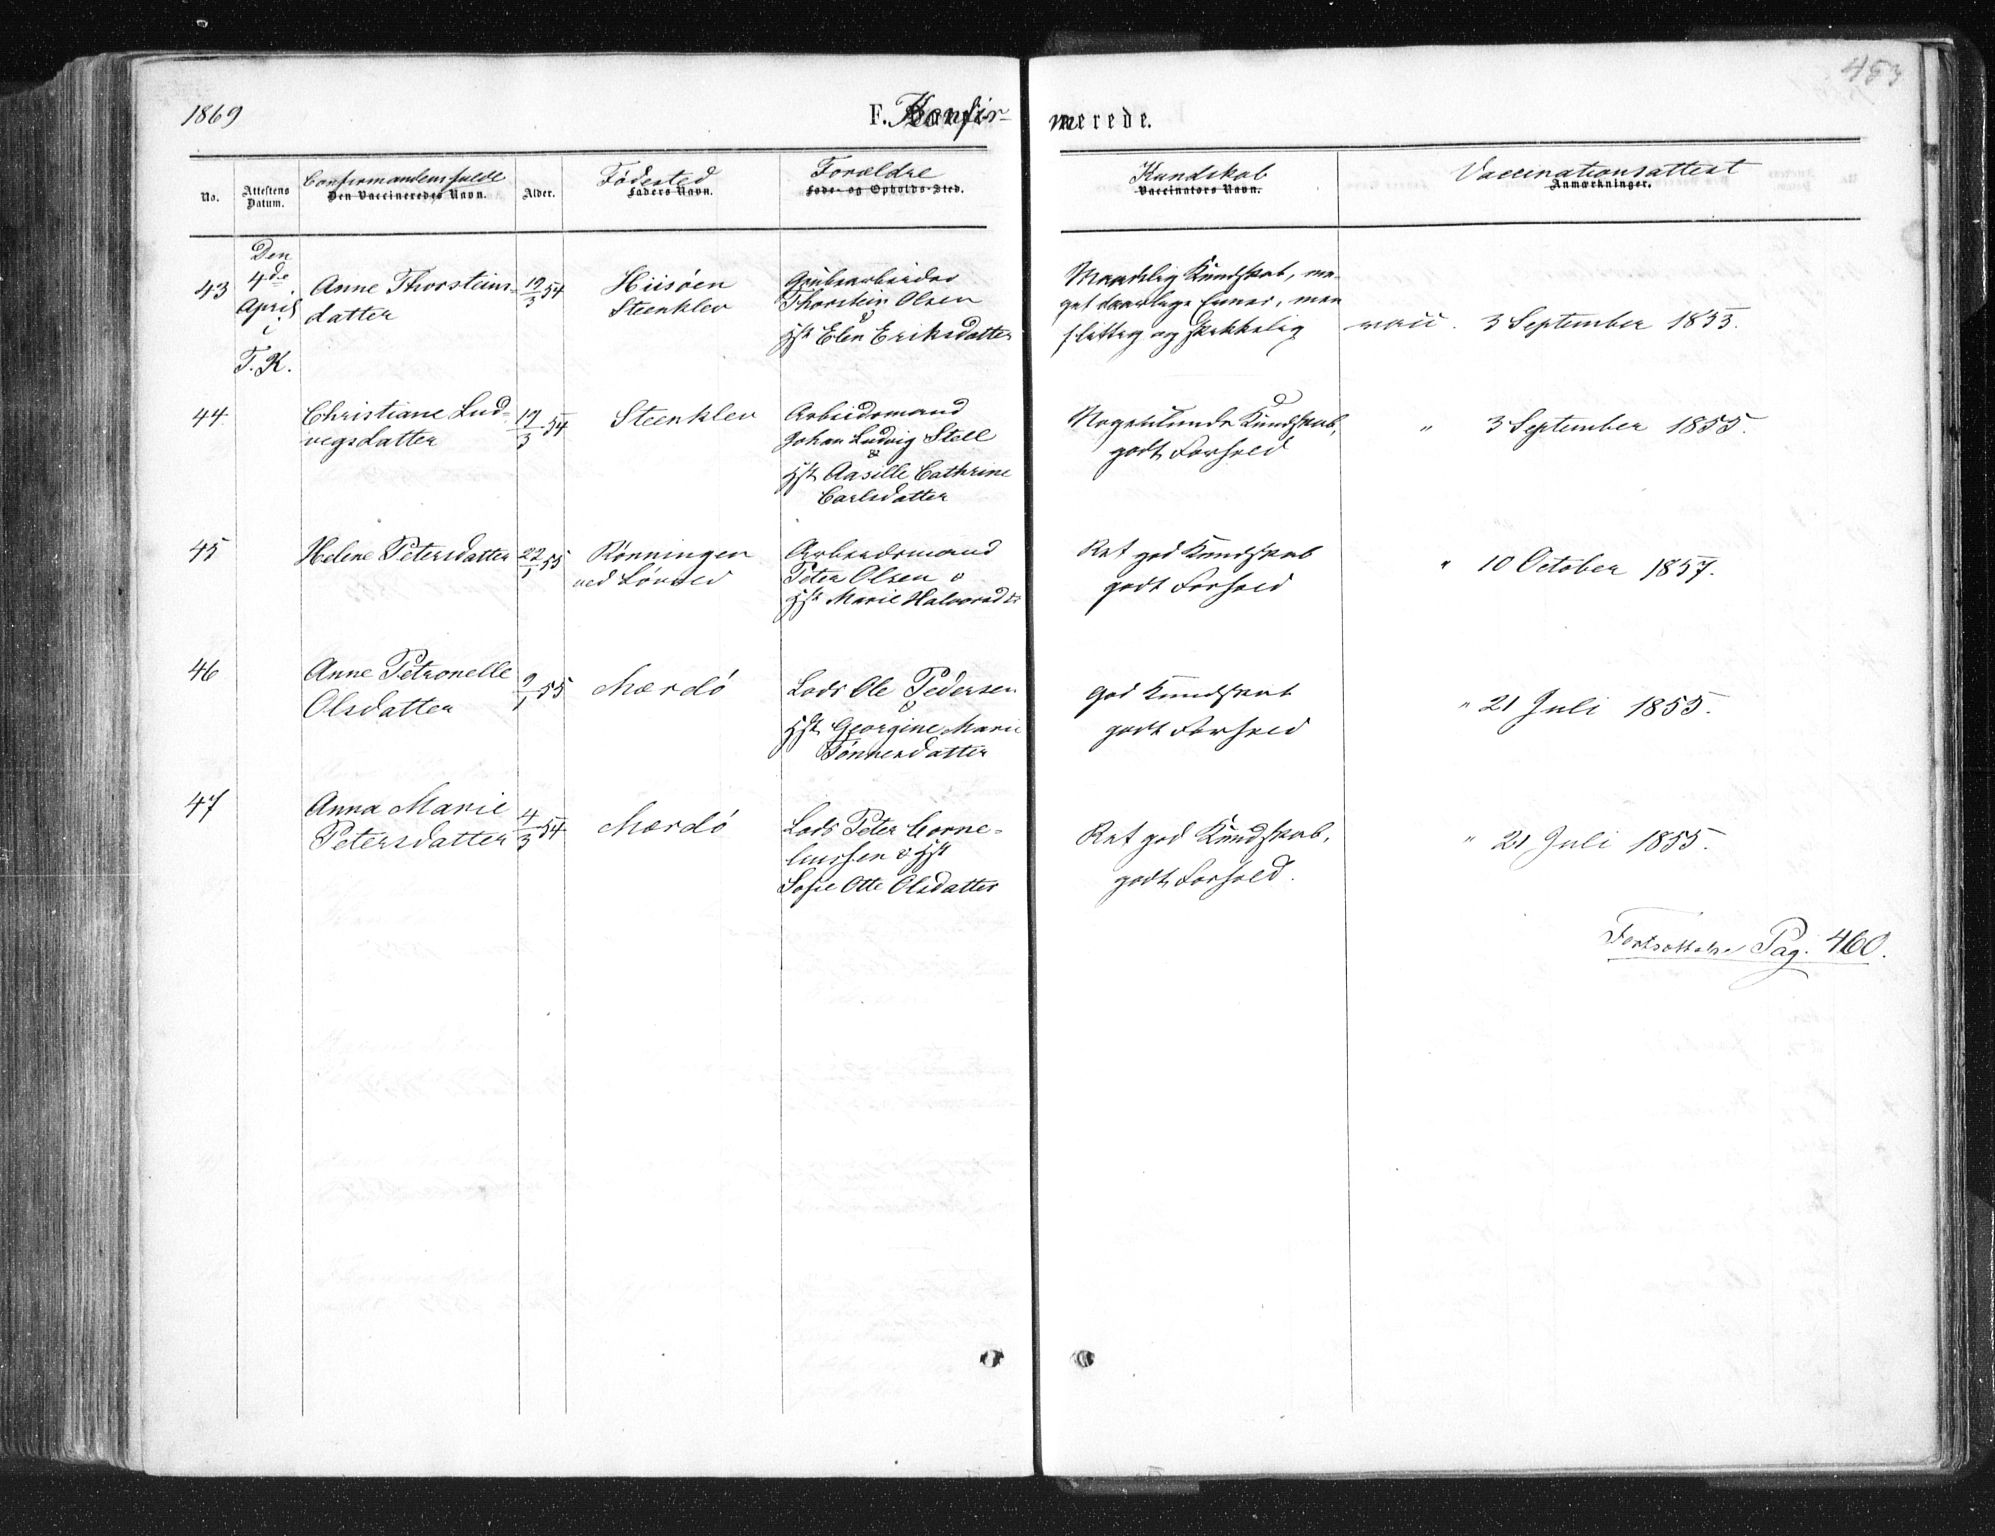 453
1869
F. Konfir-
merede.
No.
Attestens Datum.
Confirmandens fulde
Den Vaccineredes Navn.
Alder.
Fødested
Faders Navn.
Forældre
Føde- og Opholds-Sted.
Kundskab
Vaccinators Navn.
Vaccinationsattest
Anmærkninger.
Den
4de
April
i
T. K.
43
Anne Thorsteins-
datter
19/3 54
Hiisøen
Steenklev
Grubearbeider
Thorstein Olsen
&
Hst Elen Eriksdatter
Maadelig Kundskab, me-
get daarlige Evner, men
flittig og skikkelig
vacc. 3 September 1855.
44
Christiane Lud-
vigsdatter
19/3 54
Steenklev
Arbeidsmand
Johan Ludvig Stell
&
Hst Aasille Cathrine
Carlsdatter
Nogenlunde Kundskab,
godt Forhold
" 3 September 1855.
45
Helene Petersdatter
22/1 55
Rønningen
ved Løvold
Arbeidsmand
Peter Olsen &
Hst Marie Halvorsdtr
Ret god Kundskab
godt Forhold
" 10 October 1857.
46
Anne Petronelle
Olsdatter
9/1 55
Mærdö
Lods Ole Pedersen
&
Hst Georgine Marie
Tønnesdatter
god Kundskab
godt Forhold
" 21 Juli 1855.
47
Anna Marie
Petersdatter
4/3 54
Mærdö
Lods Peter Corne-
liussen & Hst
Sofie Otte Olsdatter
Ret god Kundskab,
godt Forhold.
" 21 Juli 1855.
Fortsættelse Pag. 460.